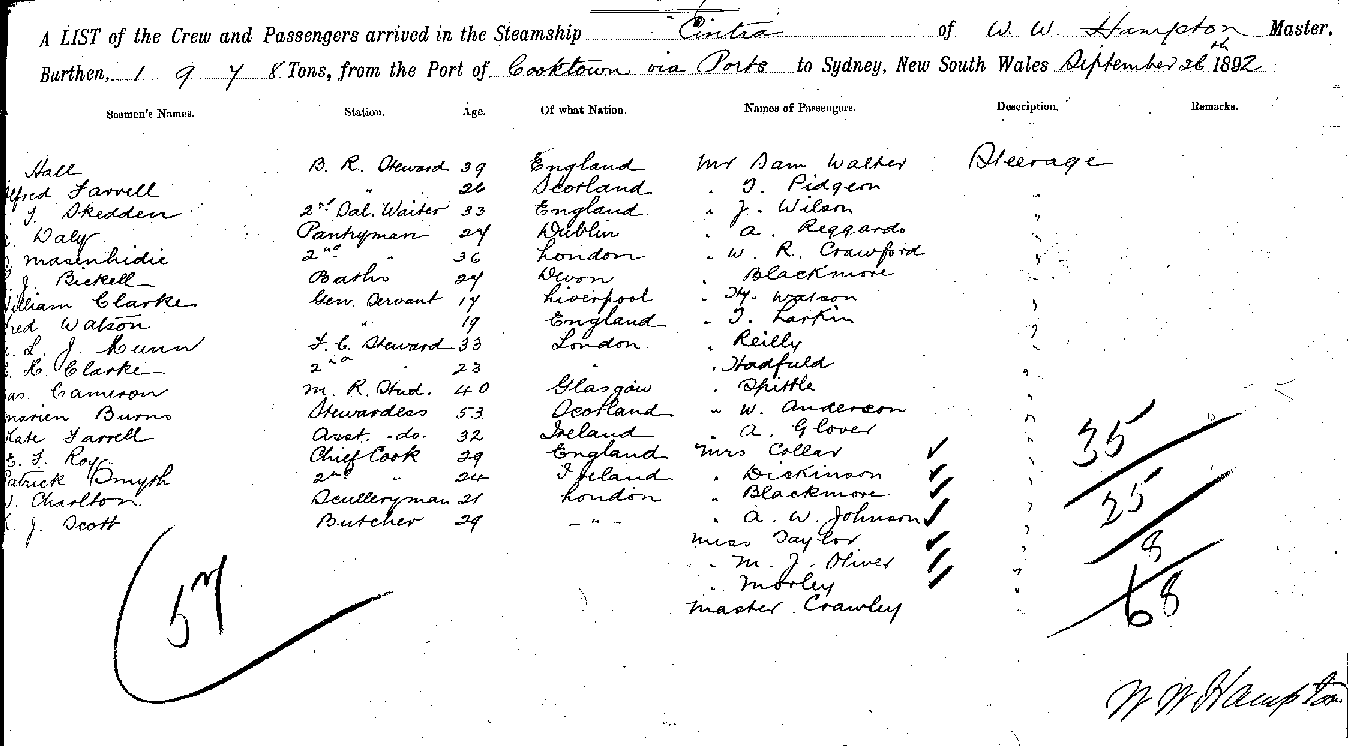 A LIST of the Crew and Passengers arrived in the Steamship Cintra of W. W. Hampton Master,
Burthen, 1 9 7 8 Tons, from the Port of Cooktown via Ports to Sydney, New South Wales September 26th 1892
Seamen's Names. Station. Age. Of what Nation. Names of Passengers. Description. Remarks.
Hall B. R. Steward 39 England Mr Sam Walter Steerage
lfred Farrell " 26 Scotland " T. Pidgeon "
T. Skedden 2nd Sal. Waiter 33 England " J. Wilson "
Daly Pantryman 27 Dublin " A. Reggardo "
2nd " 36 London " W. R. Crawford "
J. Bickell Baths 27 Devon " Blackmore "
illiam Clarke Gen. Servant 17 Liverpool " Hy. Watson "
red Watson " 19 England " T. Larkin "
L. J. Munn F. C. Steward 33 London " Reilly "
H. Clarke 2nd " 23 " " Hadfield "
as. Cameron M. R. Stwd. 40 Glasgow " Spittle "
Burns Stewardess 53 Scotland " W. Anderson "
Kate Farrell Asst. -do. 32 Ireland " A. Glover "
E. F. Roy Chief Cook 29 England Mrs Collar "
Patrick Smyth 2nd " 24 Ireland " Dickinson "
Charlton Sculleryman 21 London " Blackmore "
J. Scott Butcher 29 - " - " A. W. Johnson "
Miss Taylor "
" M. J. Oliver "
" Morley "
Master Crawley "
57
35
25
8
68
W W Hampton